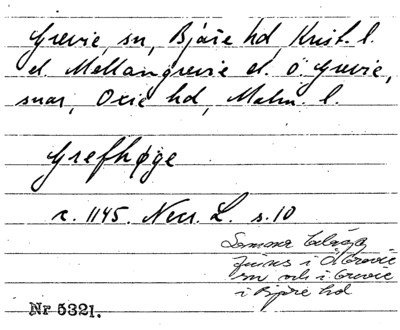 Grevie, sn, Bjäre hd Krist. l.
el. Mellangrevie el. Ö. Grevie,
snar, Oxie hd, Malm. l.
Grefhøge
c. 1145. Necr. L. s. 10
Samma
finns i Ö Grevie
sn och i Grevie
i Bjäre hd
Nr 5321.